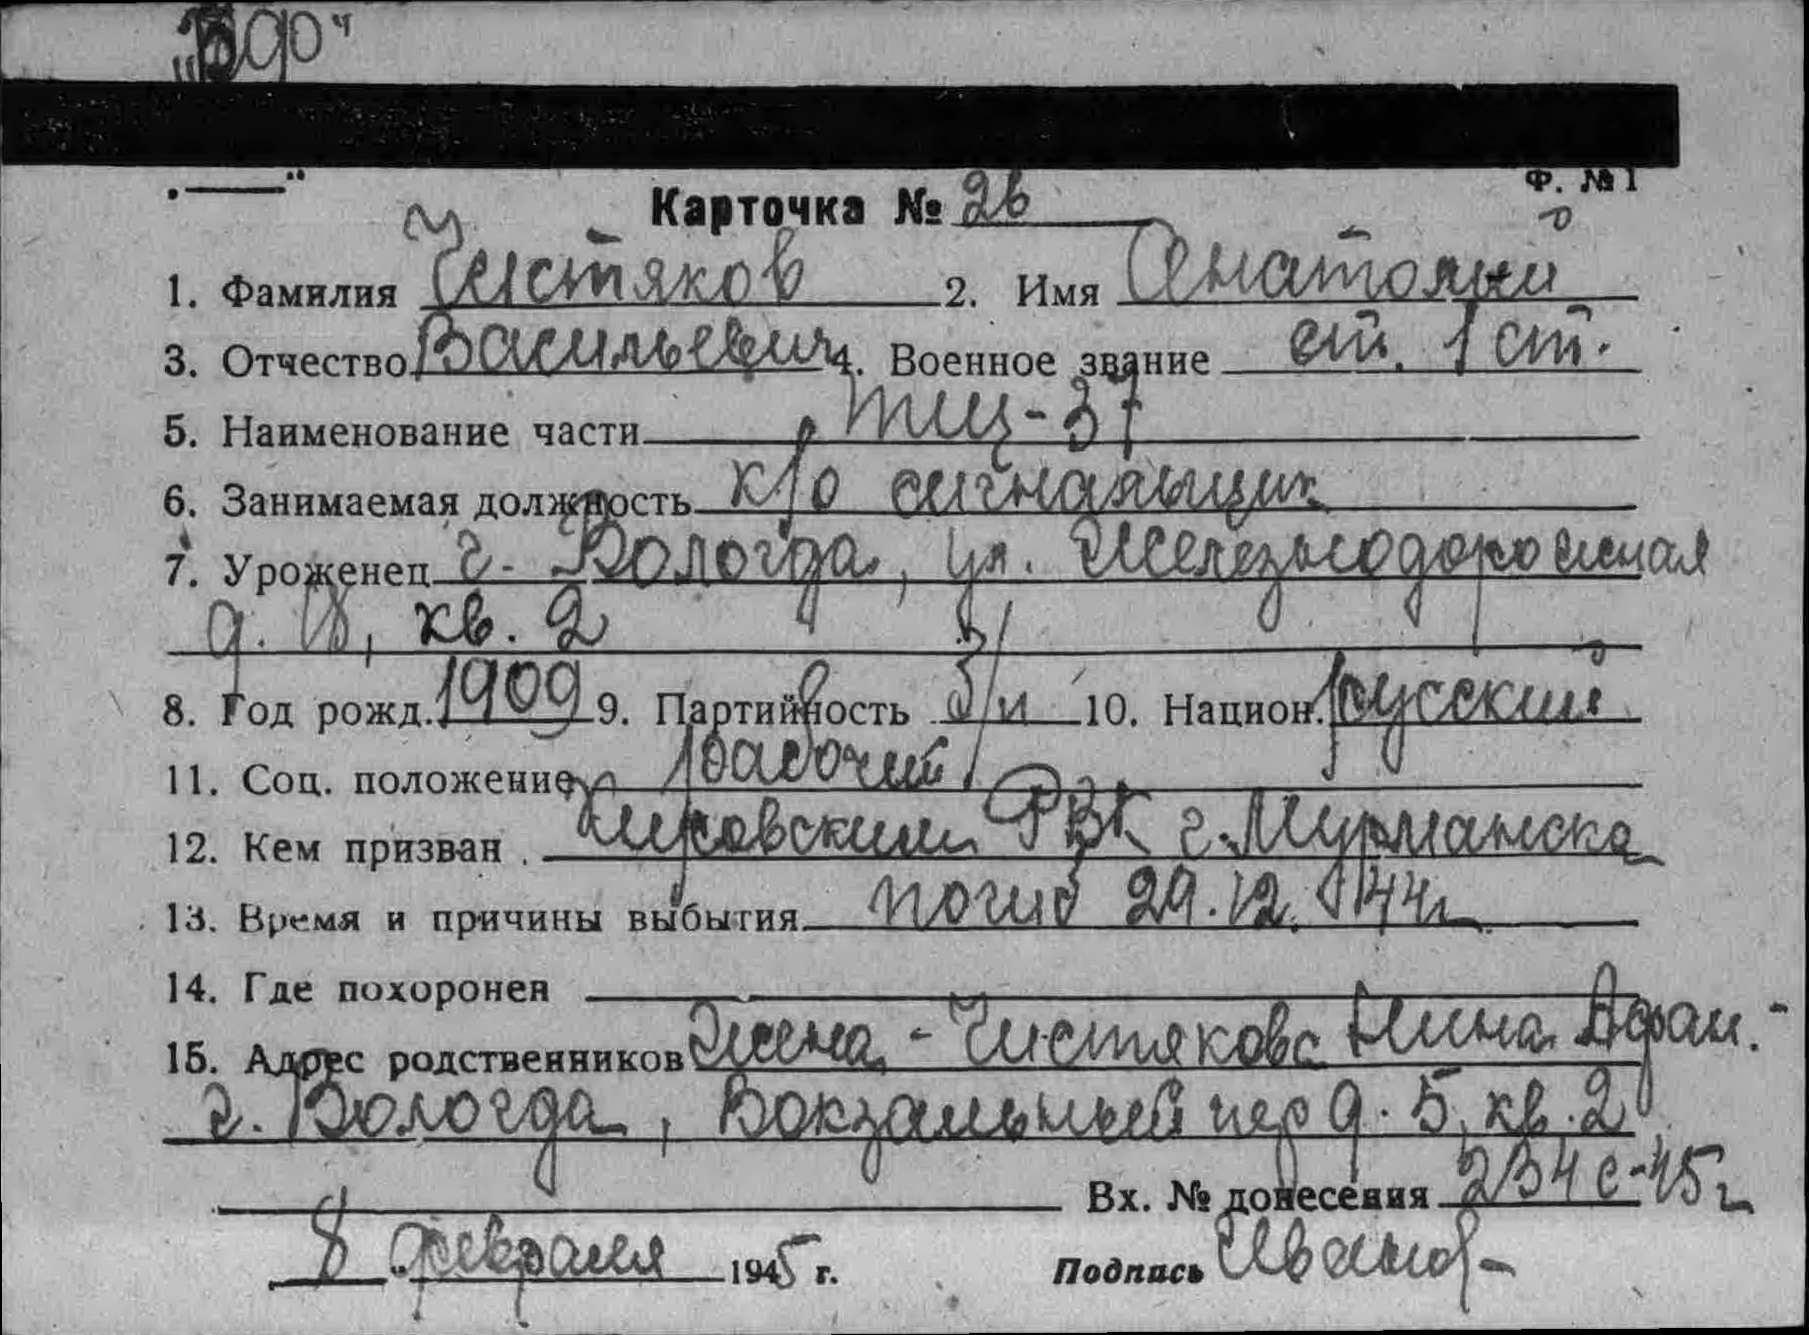 Ф. № 1
Карточка № 26
1. Фамилия Чистяков 2. Имя Анатолий
3. Отчество Васильевич 4. Военное звание ст. 1 ст.
5. Наименование части ТЩ-37
6. Занимаемая должность к/о сигнальщик
7. Уроженец г. Вологда, ул. Железнодорожная
д. 18, кв. 2
8. Год рожд. 1909 9. Партийность б/п 10. Национ. русский
11. Соц. положение рабочий
12. Кем призван Кировским РВК г. Мурманска
13. Время и причины выбытия погиб 29.12.44г
14. Где похоронен
15. Адрес родственников Жена - Чистякова Нина Афан.-
г. Вологда, Вокзальный пер д. 5, кв. 2
Вх. № донесения 234с-45г
8 февраля 1945 г. Подпись Иванов